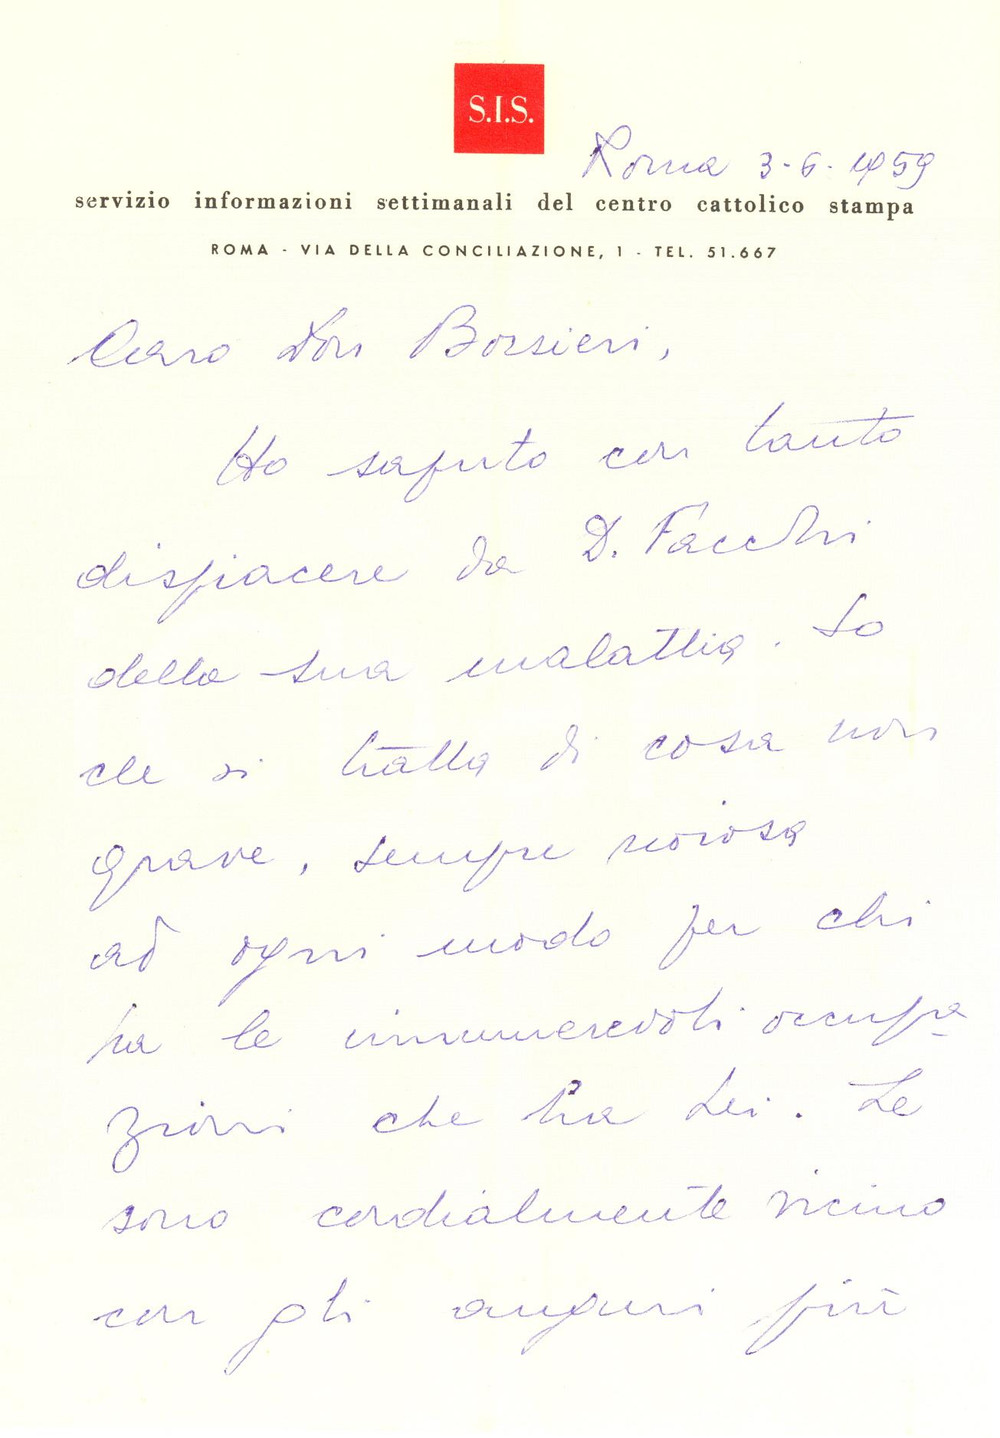 S.I.S.
Roma 3-6-1959
servizio informazioni settimanali del centro cattolico stampa
ROMA - VIA DELLA CONCILIAZIONE, 1 - TEL. 51.667
Caro Don Borsieri,
Ho saputo con tanto
dispiacere da D. Facchi
della sua malattia. So
che si tratta di cosa non
grave, sempre noiosa
ad ogni modo per chi
ha le innumerevoli occupa-
zioni che ha Lei. Le
sono cordialmente vicino
con gli auguri più